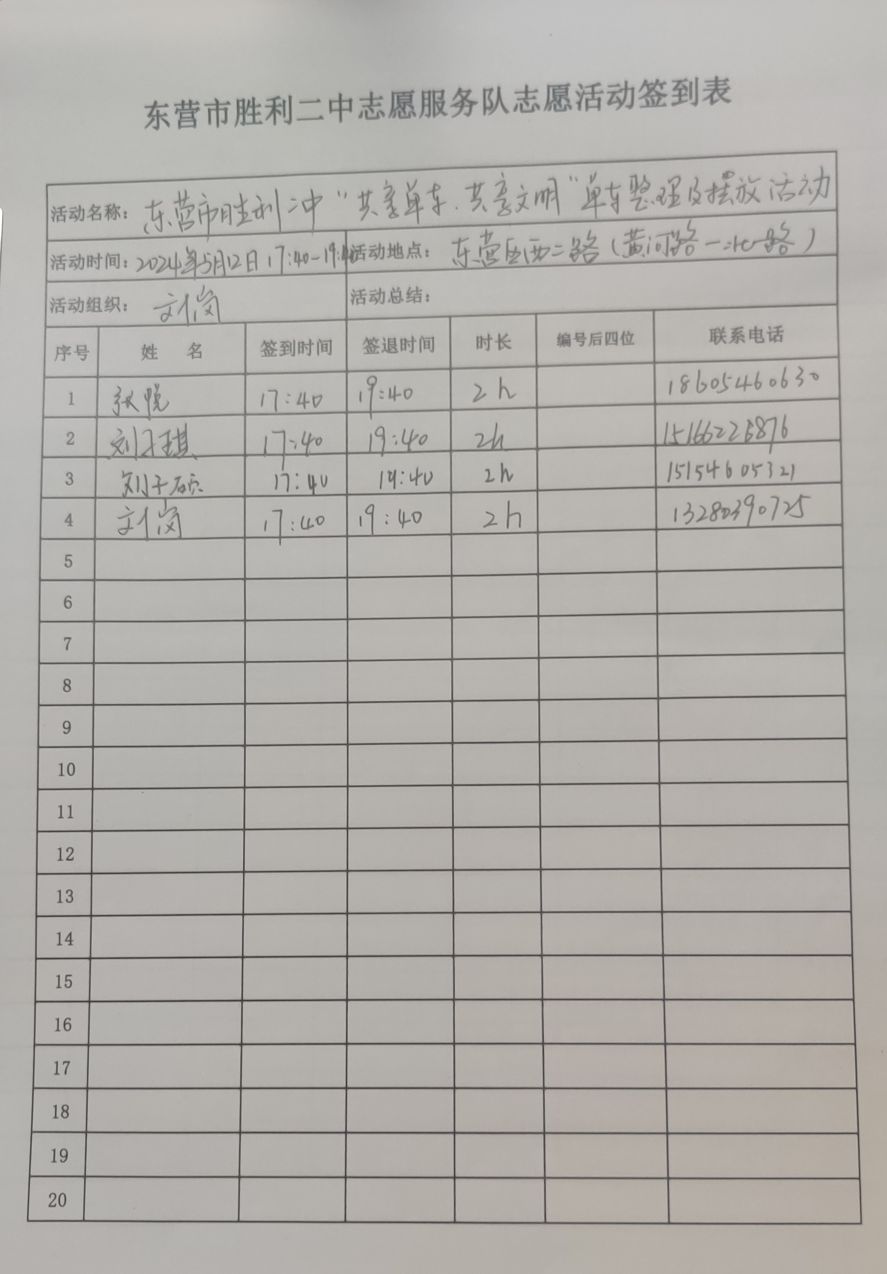 东营市胜利二中志愿服务队志愿活动签到表
活动名称： 东营市胜利二中“共享单车.共享文明”单车整理及摆放活动
活动时间：2024年5月12日 17:40-19:40 活动地点： 东营区西二路（黄河路—北一路）
活动组织： 活动总结：
序号 姓 名 签到时间 签退时间 时长 编号后四位 联系电话
1 张悦 17:40 19:40 2h 18605460630
2 刘子琪 17:40 19:40 2h
3 刘子硕 17:40 19:40 2h 15154605321
4 17:40 19:40 2h 13280390725
5
6
7
8
9
10
11
12
13
14
15
16
17
18
19
20